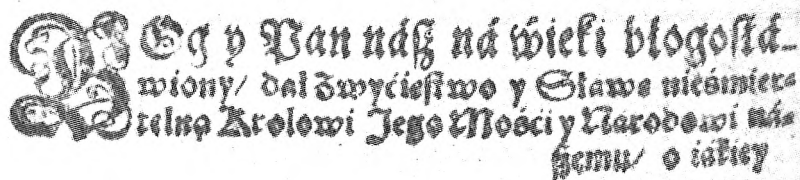 BOg y Pan náß ná wieki błogosłá-
wiony/ dał zwyćięstwo y Sławę nieśmier-
telną Krolowi Jego Mości y Narodowi ná-
ßemu/ o iákiey